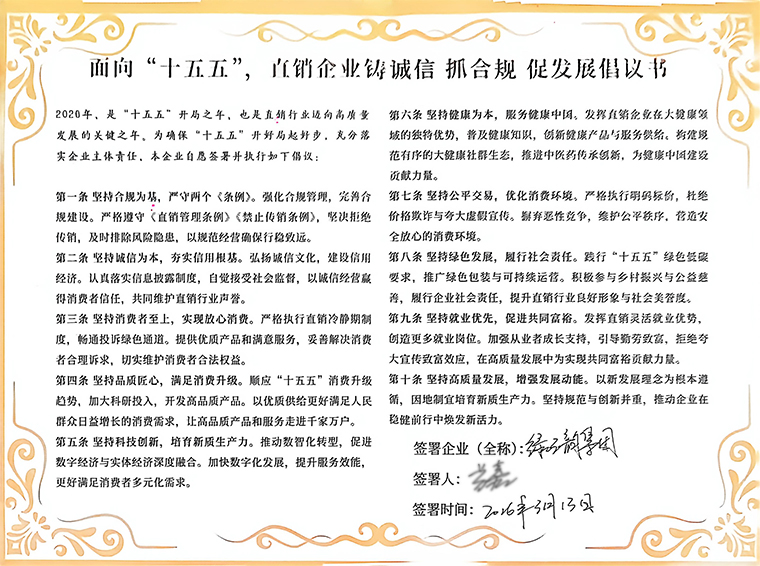 面向“十五五”，直销企业铸诚信 抓合规 促发展倡议书
2020年，是“十五五”开局之年，也是直销行业迈向高质量
发展的关键之年。为确保“十五五”开好局起好步，充分落
实企业主体责任，本企业自愿签署并执行如下倡议：
第一条 坚持合规为基，严守两个《条例》。强化合规管理，完善合
规建设。严格遵守《直销管理条例》《禁止传销条例》，坚决拒绝
传销，及时排除风险隐患，以规范经营确保行稳致远。
第二条 坚持诚信为本，夯实信用根基。弘扬诚信文化，建设信用
经济。认真落实信息披露制度，自觉接受社会监督，以诚信经营赢
得消费者信任，共同维护直销行业声誉。
第三条 坚持消费者至上，实现放心消费。严格执行直销冷静期制
度，畅通投诉绿色通道。提供优质产品和满意服务，妥善解决消费
者合理诉求，切实维护消费者合法权益。
第四条 坚持品质匠心，满足消费升级。顺应“十五五”消费升级
趋势，加大科研投入，开发高品质产品。以优质供给更好满足人民
群众日益增长的消费需求，让高品质产品和服务走进千家万户。
第五条 坚持科技创新，培育新质生产力。推动数智化转型，促进
数字经济与实体经济深度融合。加快数字化发展，提升服务效能，
更好满足消费者多元化需求。
第六条 坚持健康为本，服务健康中国。发挥直销企业在大健康领
域的独特优势，普及健康知识，创新健康产品与服务供给。构建规
范有序的大健康社群生态，推进中医药传承创新，为健康中国建设
贡献力量。
第七条 坚持公平交易，优化消费环境。严格执行明码标价，杜绝
价格欺诈与夸大虚假宣传。摒弃恶性竞争，维护公平秩序，营造安
全放心的消费环境。
第八条 坚持绿色发展，履行社会责任。践行“十五五”绿色低碳
要求，推广绿色包装与可持续运营。积极参与乡村振兴与公益慈
善，履行企业社会责任，提升直销行业良好形象与社会美誉度。
第九条 坚持就业优先，促进共同富裕。发挥直销灵活就业优势，
创造更多就业岗位。加强从业者成长支持，引导勤劳致富，拒绝夸
大宣传致富效应，在高质量发展中为实现共同富裕贡献力量。
第十条 坚持高质量发展，增强发展动能。以新发展理念为根本遵
循，因地制宜培育新质生产力。坚持规范与创新并重，推动企业在
稳健前行中焕发新活力。
签署企业（全称）：集团
签署人：
签署时间：2026年3月13日